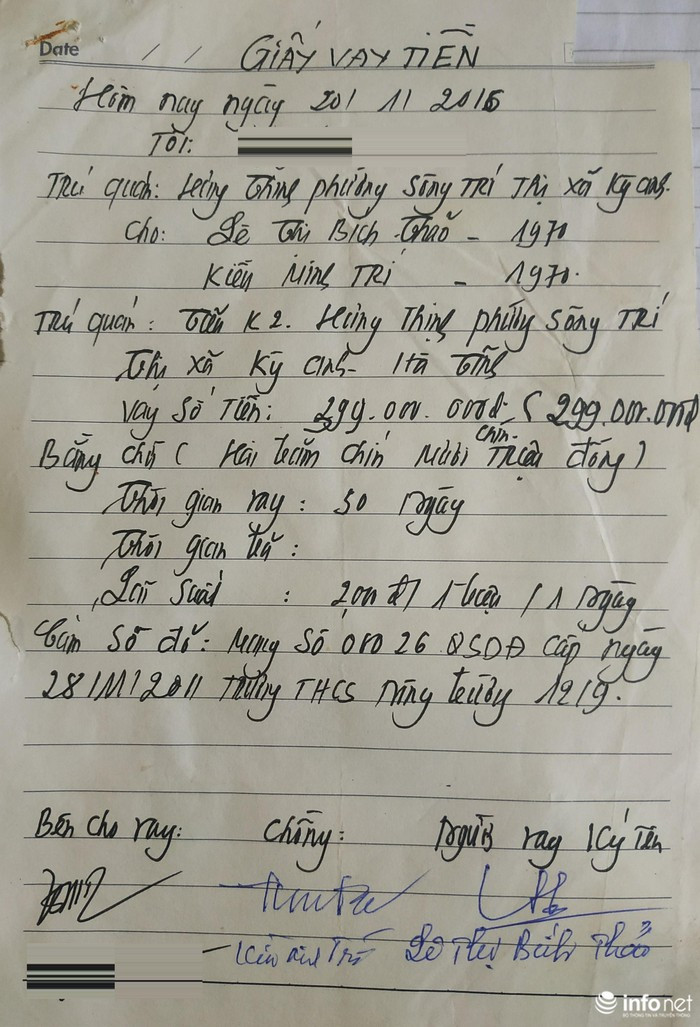 Date / /
GIẤY VAY TIỀN
Hôm nay ngày 20/ 11/ 2016
Tôi:
Trú quán: Hưng Thịnh phường Sông Trí Thị xã Kỳ Anh.
Cho: Lê Thị Bích Thảo - 1970
Kiều Minh Trí - 1970.
Trú quán: K2. Hưng Thịnh phường Sông Trí
Thị xã Kỳ Anh - Hà Tĩnh
Vay số tiền: 299.000.000đ ( 299.000.000đ
Bằng chữ ( Hai trăm chín mươi chín Triệu đồng )
Thời gian vay: 30 ngày
Thời gian trả:
Lãi suất : 2,000 đ/ 1 triệu / 1 ngày
Cầm sổ đỏ: mang số 00026 QSDĐ cấp ngày
28/11/2011 Trường THCS 1219.
Bên cho vay: Chồng: Người vay ký tên
Lê Thị Bích Thảo
infonet